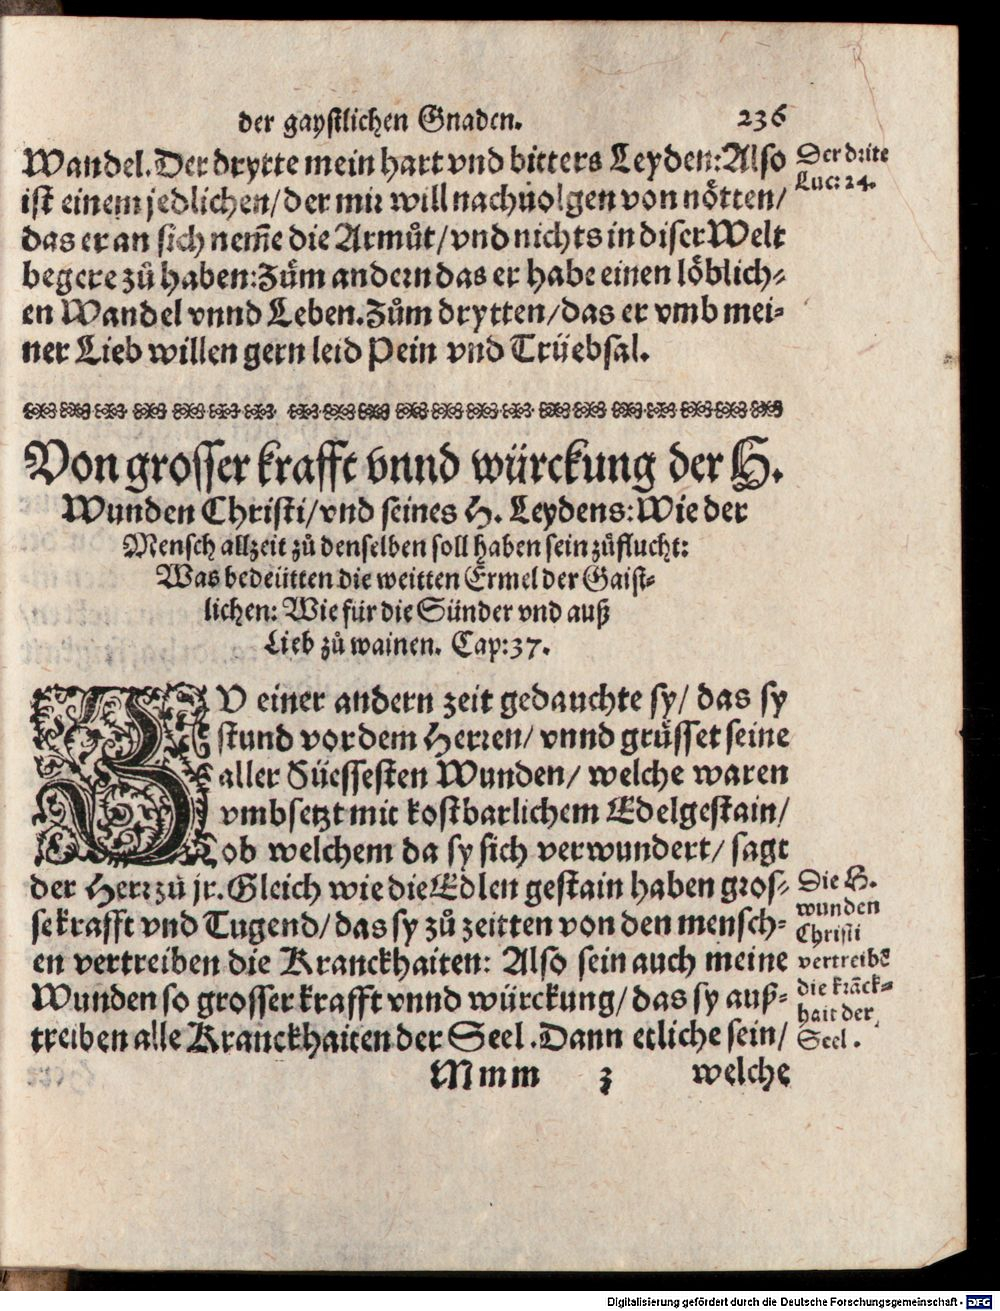 der gaystlichen Gnaden. 236
Wandel. Der drytte mein hart vnd bitters Leyden: Also
ist einem jedlichen/ der mir will nachuolgen von nötten/
das er an sich nem̃e die Armůt/ vnd nichts in diser Welt
begere zů haben: Zům andern das er habe einen löblich⸗
en Wandel vnnd Leben. Zům drytten/ das er vmb mei⸗
ner Lieb willen gern leid Pein vnd Trüebsal.
Der drite
Luc: 24.
Von grosser krafft vnnd würckung der H.
Wunden Christi/ vnd seines H. Leydens: Wie der
Mensch allzeit zů denselben soll haben sein zůflucht:
Was bedeütten die weitten Ermel der Gaist⸗
lichen: Wie für die Sünder vnd auß
Lieb zů wainen. Cap: 37.
ZV einer andern zeit gedauchte sy/ das sy
stund vor dem Herren/ vnnd grüsset seine
aller Süessesten Wunden/ welche waren
vmbsetzt mit kostbarlichem Edelgestain/
ob welchem da sy sich verwundert/ sagt
der Herr zů jr. Gleich wie die Edlen gestain haben gros⸗
se krafft vnd Tugend/ das sy zů zeitten von den mensch⸗
en vertreiben die Kranckhaiten: Also sein auch meine
Wunden so grosser krafft vnnd würckung/ das sy auß⸗
treiben alle Kranckhaiten der Seel. Dann etliche sein/
Die H.
wunden
Christi
vertreibẽ
die krãck⸗
hait der
Seel.
Mmm 3 welche
Digitalisierung gefördert durch die Deutsche Forschungsgemeinschaft - DFG